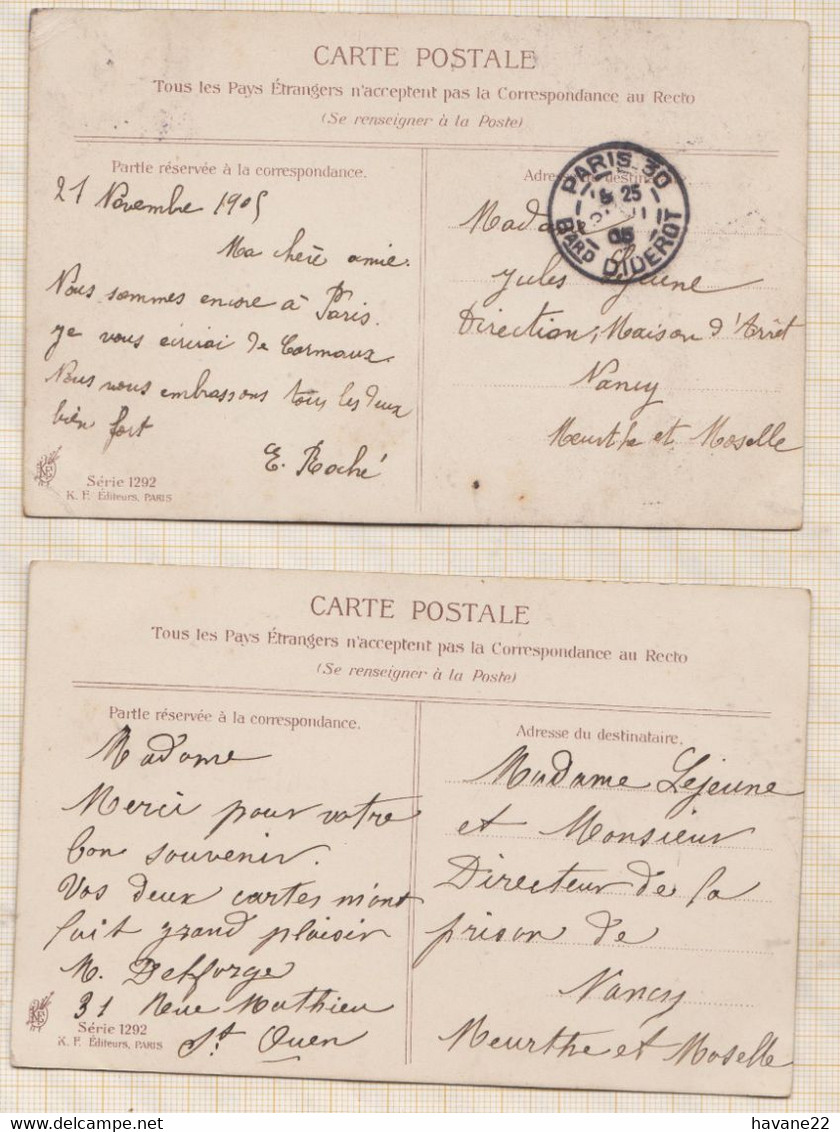 CARTE POSTALE
Tous les Pays Étrangers n'acceptent pas la Correspondance au Recto
(Se renseigner à la Poste)
Partie réservée à la correspondance.
21 Novembre 1905
Ma chère amie.
Nous sommes encore à Paris.
je vous écrirai de Carmaux.
Nous vous embrassons tous les deux
bien fort
E. Roché
Série 1292
K. F. Éditeurs, PARIS
Adresse du destinataire
PARIS 30
25
05
BARD DIDEROT
Madame
Jules Lejeune
Direction, Maison d'Arrêt
Nancy
Meurthe et Moselle
CARTE POSTALE
Tous les Pays Étrangers n'acceptent pas la Correspondance au Recto
(Se renseigner à la Poste)
Partie réservée à la correspondance.
Madame
Merci pour votre
bon souvenir.
Vos deux cartes m'ont
fait grand plaisir
M. Delforge
31 Rue Mathieu
St. Ouen
Série 1292
K. F. Éditeurs, PARIS
Adresse du destinataire.
Madame Lejeune
et Monsieur
Directeur de la
prison de
Nancy
Meurthe et Moselle
delcampe.net
havane22